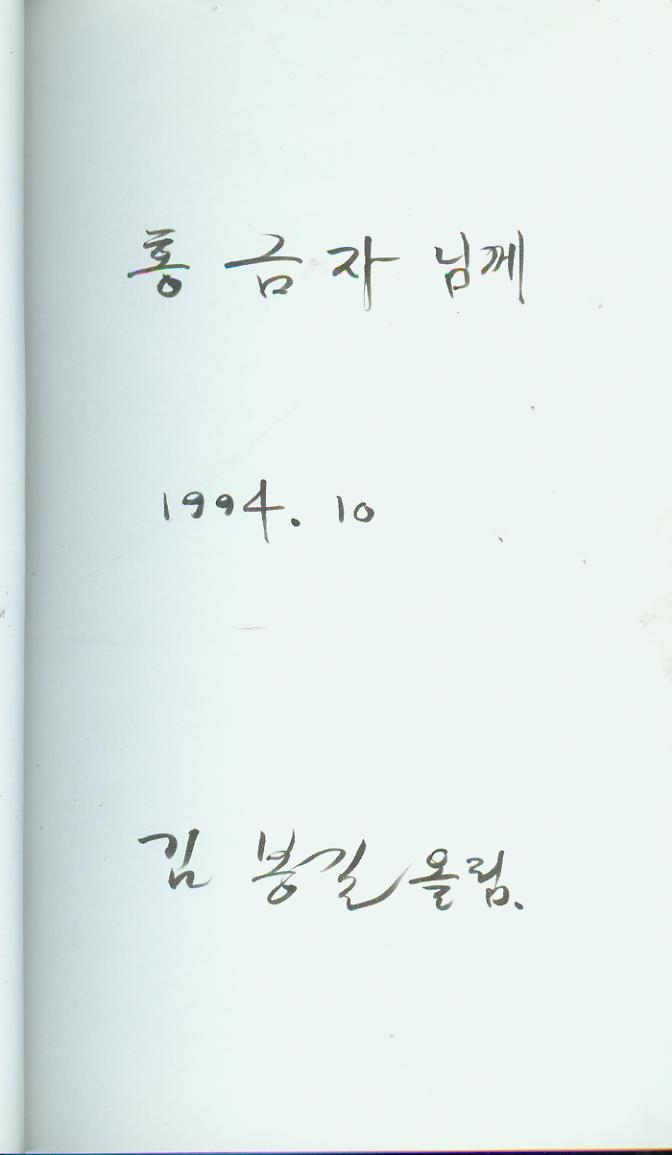 홍 금 자 님께
1994. 10
김 봉길 올림.